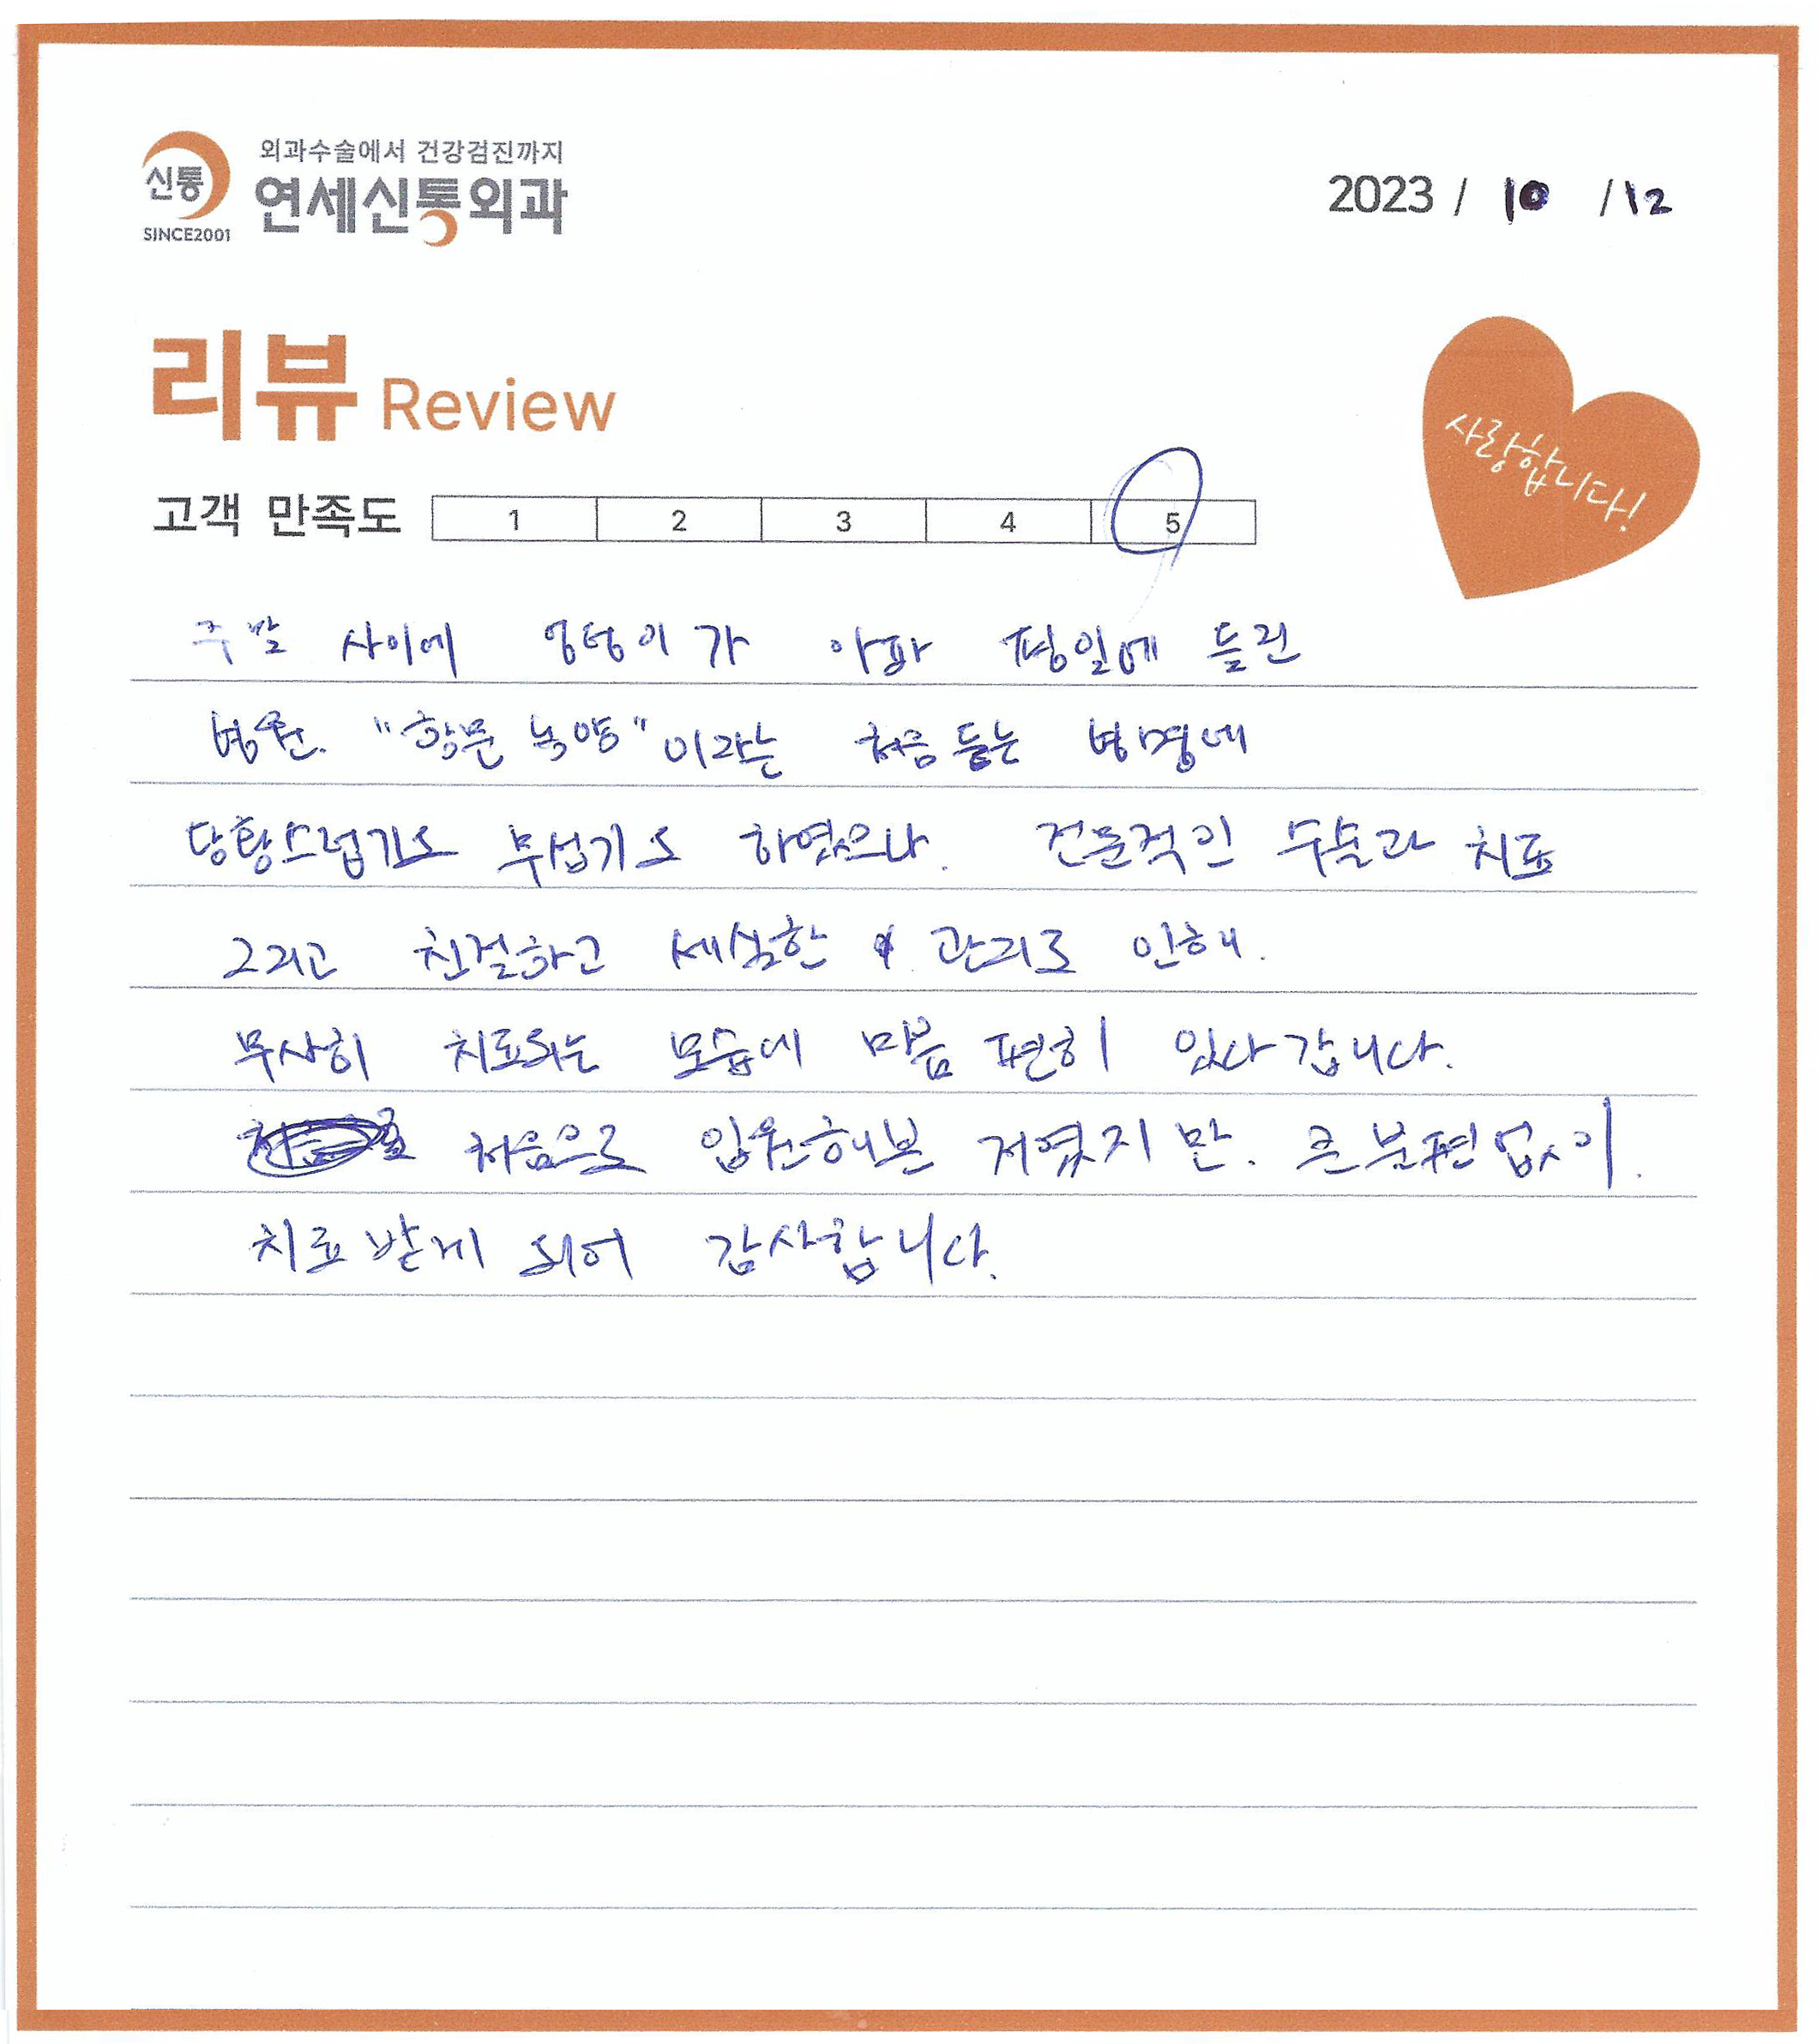 외과수술에서 건강검진까지
신통 연세신통외과
SINCE2001
2023 / 10 / 12
리뷰 Review
사랑합니다!
고객 만족도 1 2 3 4 5
주말 사이에 엉덩이가 아파 평일에 들린
병원. "항문 농양" 이라는 처음 듣는 병명에
당황스럽기도 무섭기도 하였으나. 전문적인 수술과 치료
그리고 친절하고 세심한 관리로 인해.
무사히 치료되는 모습에 마음 편히 있다 갑니다.
처음으로 입원해본 저였지만. 큰 불편 없이.
치료받게 되어 감사합니다.